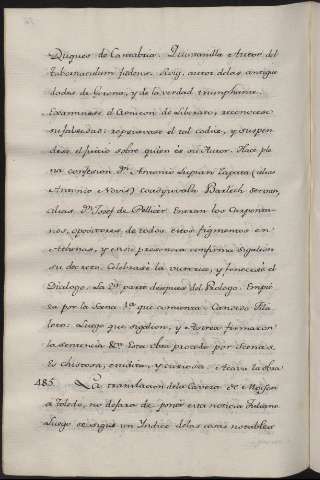 Duques de Cantabria. Quintanilla Autor del
Tabernaculum foederis. Roig, autor de las antigue
dades de Gerona, y de la verdad triumphante.
Examinase el Cronicon de Liberato, reconocese
su falsedad: repruevase el tal codice, y suspen
dese el juicio sobre quien es su Autor. Hace ple
na confesion Dn. Antonio Lupian Zapata (alias
Antonio Novis) Coadyuvala
alias Dn. Josef de Pellicer. Entran los Carpenta
nos, opositores, de todos estos figmentos en
Athenas, y en su presencia confirma Sigalion
su decreto. Celebrase la victoria, y fenecese el
Dialogo. La 2ª parte despues del Prologo. Empie
za por la Scena 1ª que comienza: Canoro Fila
letro. Luego que Sigalion, y Astrea firmaron
la sentencia &ca. Esta obra procede por Scenas.
Es chistosa, erudita, y curiosa. Acava la obra
485. La translacion de la Caveza de
a Toledo, no dejara de poner esta noticia Juliano
Luego se sigue un Yndice de las cosas notables